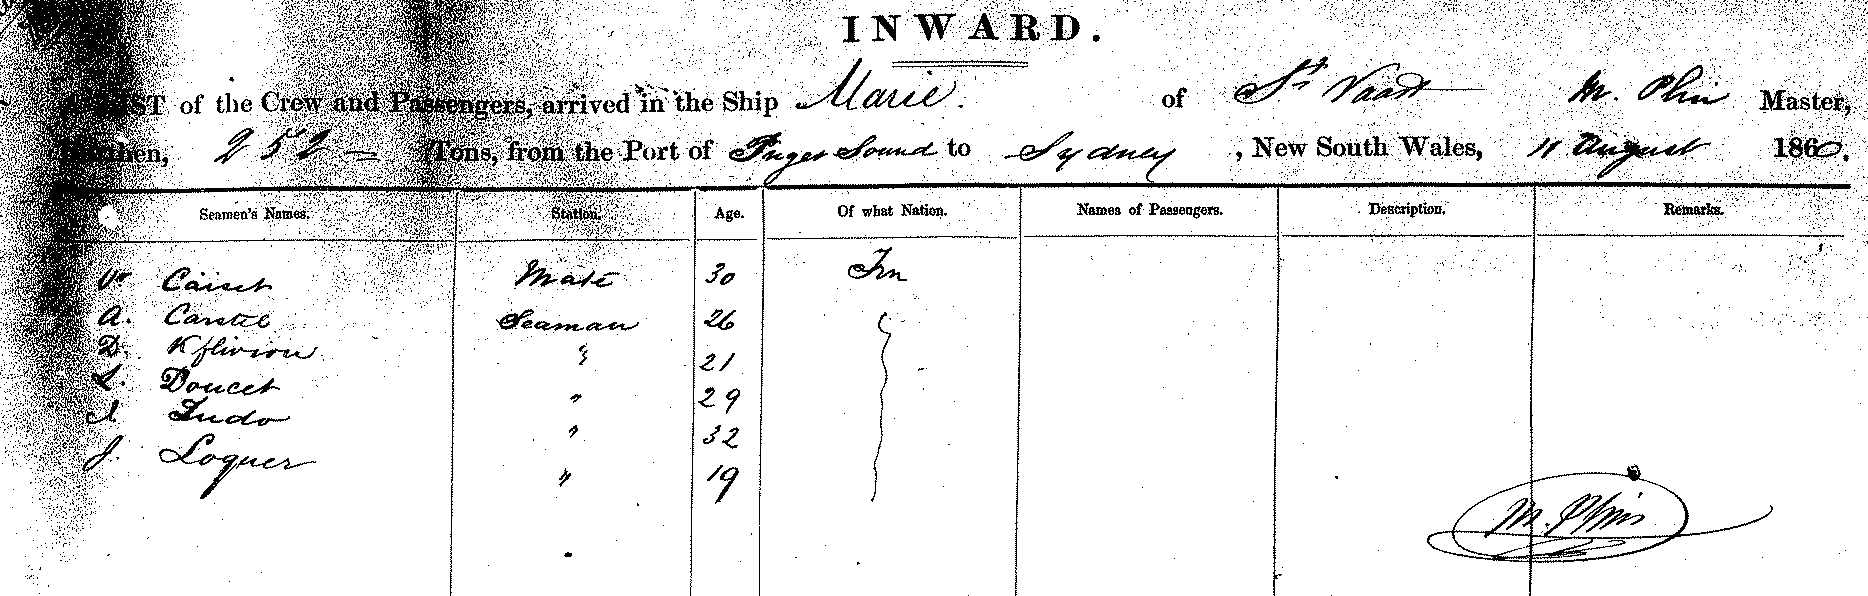 INWARD.
LIST of the Crew and Passengers, arrived in the Ship Marie. of St Vaast M. Plin Master,
Burthen, 252 Tons, from the Port of Puget Sound to Sydney, New South Wales, 11 August 1860.
Seamen's Names. Station. Age. Of what Nation. Names of Passengers. Description. Remarks.
Caiset Mate 30 Frn
A. Castel Seaman 26
D. " 21
L. Doucet " 29
J. Ludo " 32
J. Loquer " 19
M. Plin